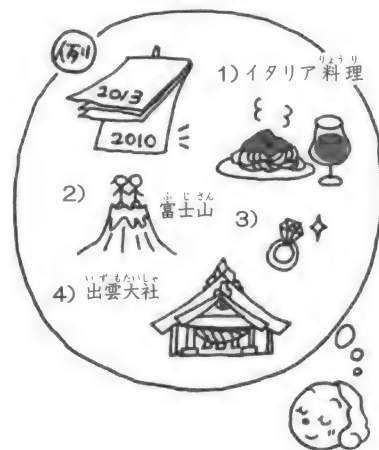 例
2013
2010
1) イタリア料理
りょうり
2)
富士山
ふじさん
3)
4) 出雲大社
いずもたいしゃ